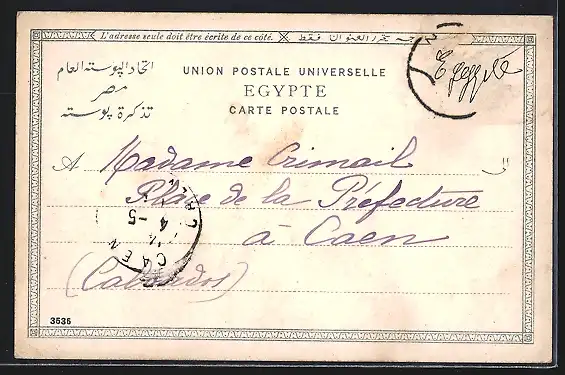 L'adresse seule doit être écrite de ce côté.
فقط
اتحاد البوسته العام
مصر
تذكرة بوسته
UNION POSTALE UNIVERSELLE
EGYPTE
CARTE POSTALE
A Madame Crimail
Place de la Préfecture
à Caen
(Calvados)
CAEN
4 - 5
3535